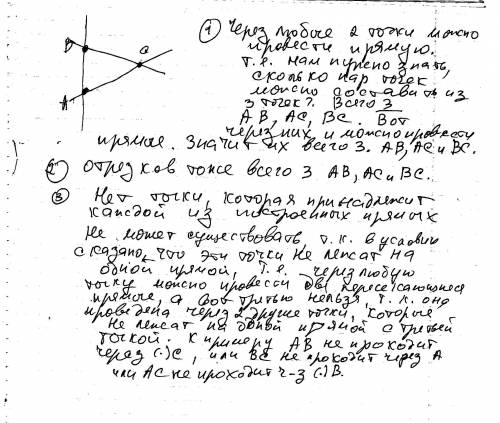 B
C
A
1) Через любые 2 точки можно
провести прямую.
Т.е. нам нужно знать,
сколько пар точек
можно составить из
3 точек?. Всего 3
AB, AC, BC. Вот
через них и можно провести
прямые. Значит их всего 3. AB, AC и BC.
2) Отрезков тоже всего 3 AB, AC и BC.
3) Нет точки, которая принадлежит
каждой из построенных прямых
Не может существовать, т.к. в условии
сказано, что эти точки не лежат на
одной прямой, т.е. через любую
точку можно провести две пересекающиеся
прямые, а вот третью нельзя, т.к. она
проведена через 2 другие точки, которые
не лежат на одной прямой с третьей
точкой. К примеру AB не проходит
через (·)C, или BC не проходит через A
или AC не проходит ч-з (·)B.